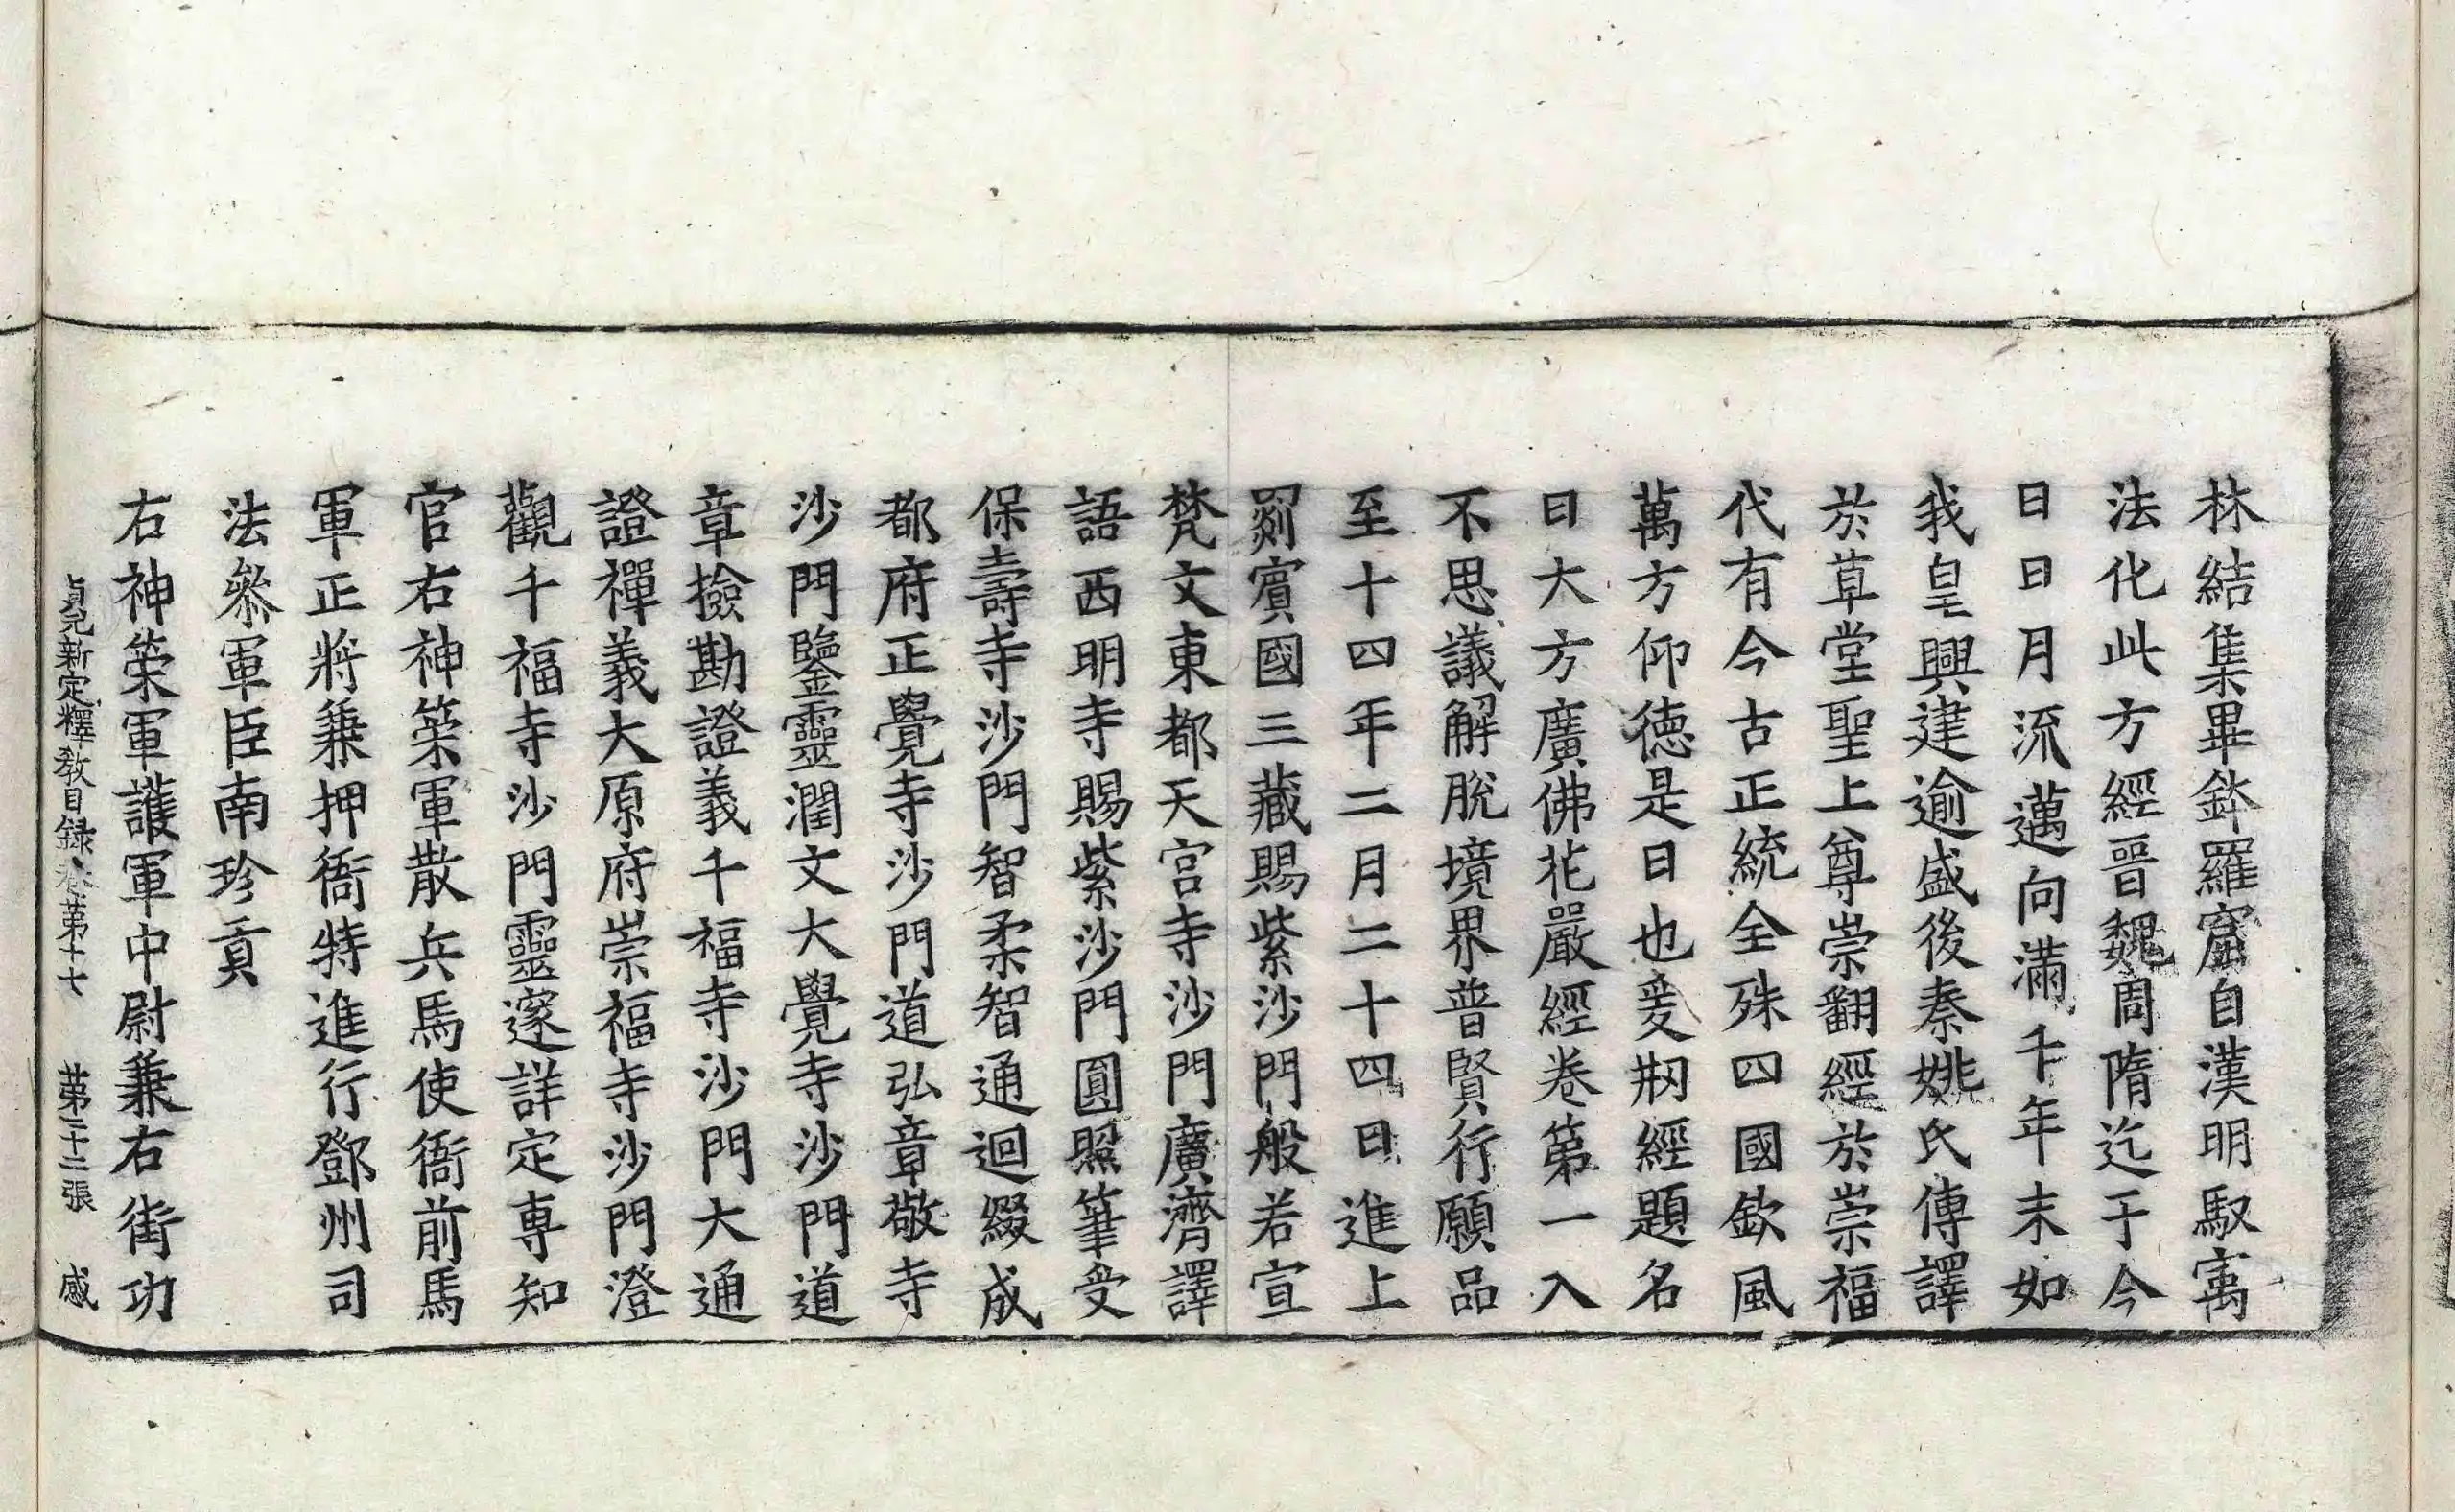 林結集畢鉢羅窟自漢明馭寓
法化此方經晉魏周隋迄于今
日日月流邁向滿千年末如
我皇興建逾盛後秦姚氏傳譯
於草堂聖上尊崇翻經於崇福
代有今古正統全殊四國欽風
萬方仰德是日也爰剏經題名
曰大方廣佛花嚴經卷第一入
不思議解脫境界普賢行願品
至十四年二月二十四日進上
罽賓國三藏賜紫沙門般若宣
梵文東都天宮寺沙門廣濟譯
語西明寺賜紫沙門圓照筆受
保壽寺沙門智柔智通迴綴成
都府正覺寺沙門道弘章敬寺
沙門鑒靈潤文大覺寺沙門道
章撿勘證義千福寺沙門大通
證禪義大原府崇福寺沙門澄
觀千福寺沙門靈邃詳定專知
官右神策軍散兵馬使衙前馬
軍正將兼押衙特進行鄧州司
法叅軍臣南珍貢
右神策軍護軍中尉兼右街功
貞元新定釋教目録卷苐十七 苐二十二張 感